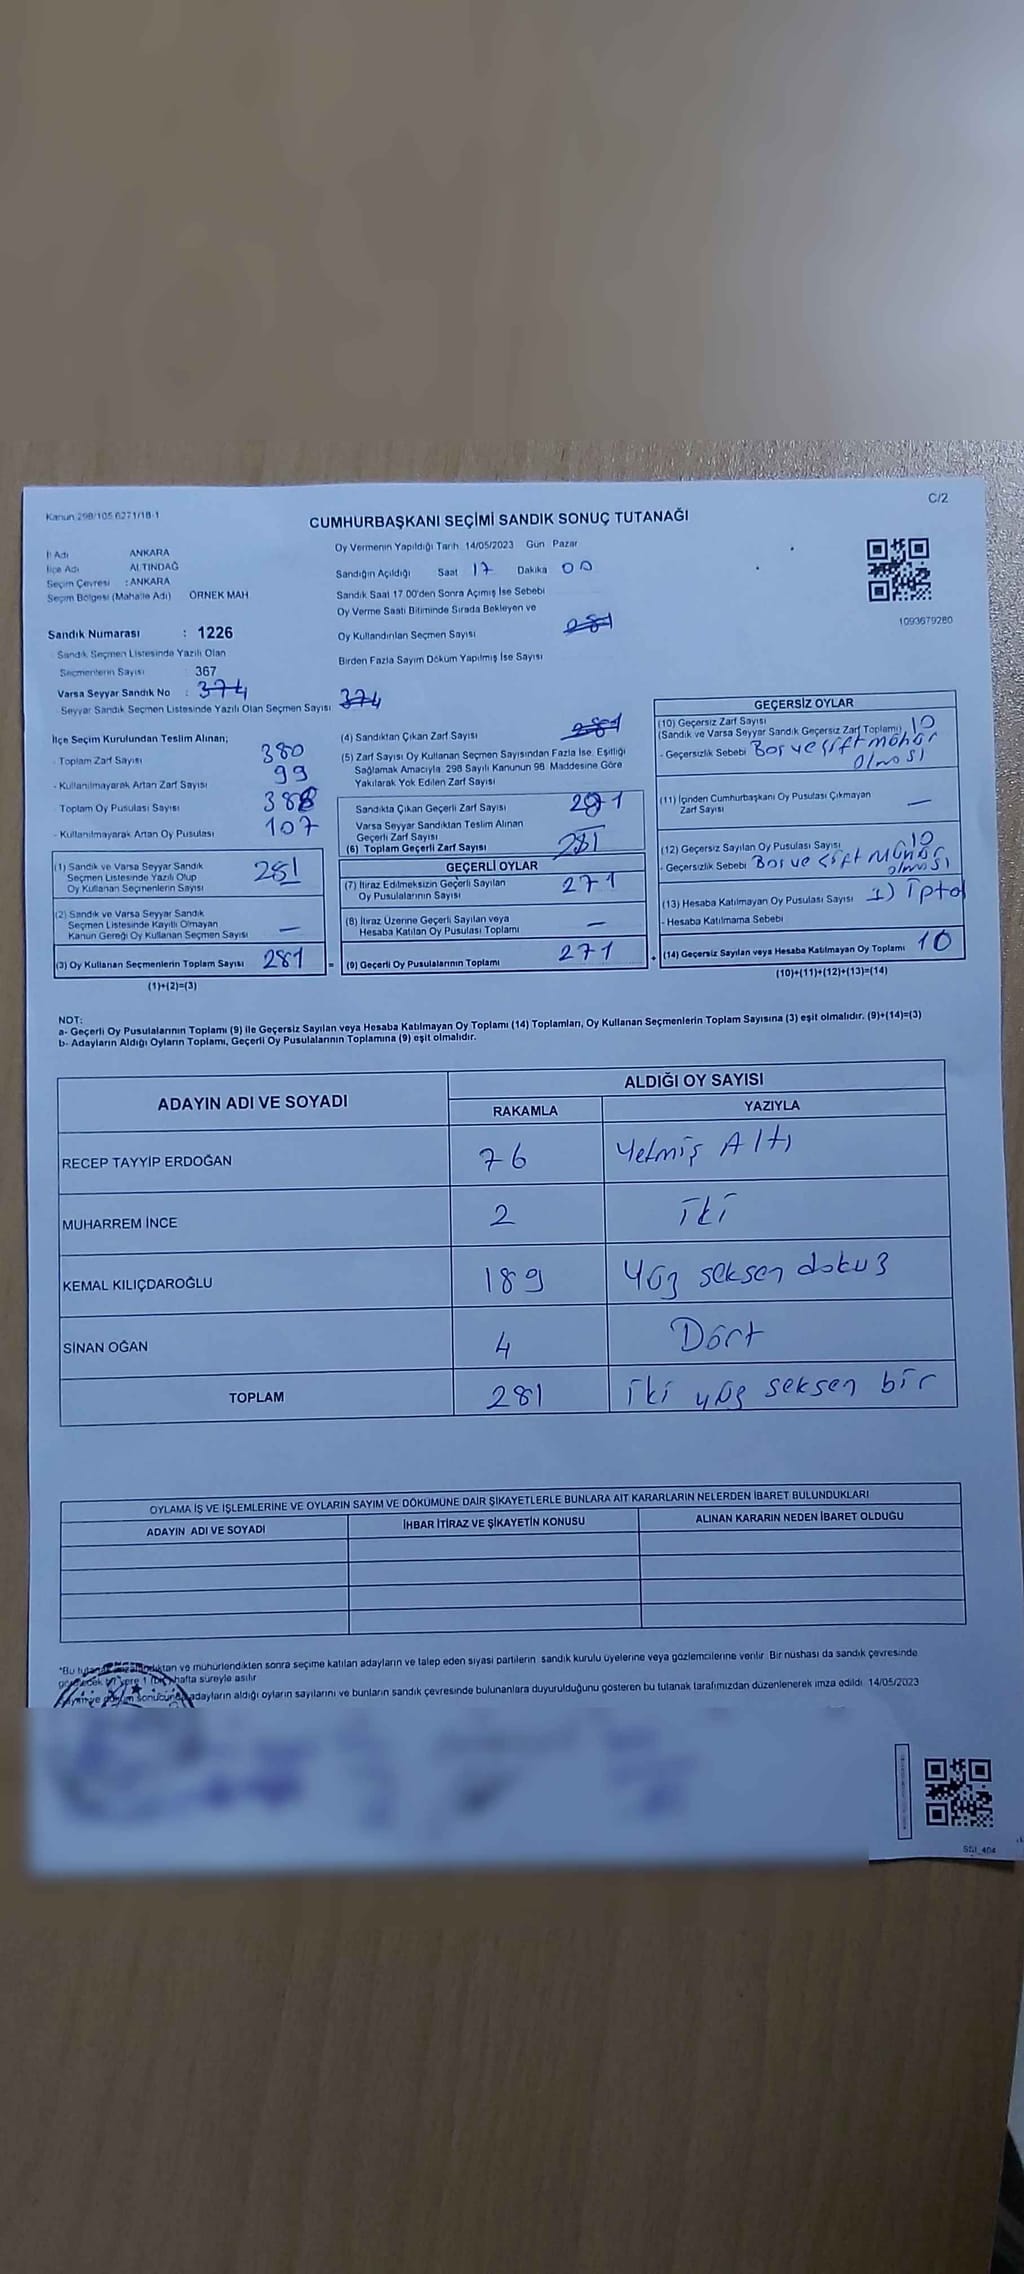 Kanun 298/105 6271/18-1
C/2
CUMHURBAŞKANI SEÇİMİ SANDIK SONUÇ TUTANAĞI
İl Adı ANKARA
İlçe Adı ALTINDAĞ
Seçim Çevresi : ANKARA
Seçim Bölgesi (Mahalle Adı) ÖRNEK MAH
Sandık Numarası : 1226
Sandık Seçmen Listesinde Yazılı Olan
Seçmenlerin Sayısı 367
Varsa Seyyar Sandık No : 374
Seyyar Sandık Seçmen Listesinde Yazılı Olan Seçmen Sayısı 374
Oy Vermenin Yapıldığı Tarih 14/05/2023 Gün Pazar
Sandığın Açıldığı Saat 17 Dakika 00
Sandık Saat 17.00'den Sonra Açımış İse Sebebi
Oy Verme Saati Bitiminde Sırada Bekleyen ve
Oy Kullandırılan Seçmen Sayısı 281
Birden Fazla Sayım Döküm Yapılmış İse Sayısı
1093679280
İlçe Seçim Kurulundan Teslim Alınan;
- Toplam Zarf Sayısı 380
- Kullanılmayarak Artan Zarf Sayısı 99
Toplam Oy Pusulası Sayısı 388
- Kullanılmayarak Artan Oy Pusulası 107
(1) Sandık ve Varsa Seyyar Sandık
Seçmen Listesinde Yazılı Olup
Oy Kullanan Seçmenlerin Sayısı 281
(2) Sandık ve Varsa Seyyar Sandık
Seçmen Listesinde Kayıtlı Olmayan
Kanun Gereği Oy Kullanan Seçmen Sayısı —
(3) Oy Kullanan Seçmenlerin Toplam Sayısı 281
(1)+(2)=(3)
(4) Sandıktan Çıkan Zarf Sayısı 281
(5) Zarf Sayısı Oy Kullanan Seçmen Sayısından Fazla İse. Eşitliği
Sağlamak Amacıyla. 298 Sayılı Kanunun 98. Maddesine Göre
Yakılarak Yok Edilen Zarf Sayısı
Sandıkta Çıkan Geçerli Zarf Sayısı 281
Varsa Seyyar Sandıktan Teslim Alınan
Geçerli Zarf Sayısı
(6) Toplam Geçerli Zarf Sayısı 281
GEÇERLİ OYLAR
(7) İtiraz Edilmeksizin Geçerli Sayılan
Oy Pusulalarının Sayısı 271
(8) İtiraz Üzerine Geçerli Sayılan veya
Hesaba Katılan Oy Pusulası Toplamı —
= (9) Geçerli Oy Pusulalarının Toplamı 271
GEÇERSİZ OYLAR
(10) Geçersiz Zarf Sayısı 10
(Sandık ve Varsa Seyyar Sandık Geçersiz Zarf Toplamı)
- Geçersizlik Sebebi Boş ve çift mühür
olması
(11) İçinden Cumhurbaşkanı Oy Pusulası Çıkmayan
Zarf Sayısı —
(12) Geçersiz Sayılan Oy Pusulası Sayısı 10
- Geçersizlik Sebebi Boş ve çift Mühür
olması
(13) Hesaba Katılmayan Oy Pusulası Sayısı
- Hesaba Katılmama Sebebi
+ (14) Geçersiz Sayılan veya Hesaba Katılmayan Oy Toplamı 10
(10)+(11)+(12)+(13)=(14)
NOT:
a- Geçerli Oy Pusulalarının Toplamı (9) ile Geçersiz Sayılan veya Hesaba Katılmayan Oy Toplamı (14) Toplamları, Oy Kullanan Seçmenlerin Toplam Sayısına (3) eşit olmalıdır. (9)+(14)=(3)
b- Adayların Aldığı Oyların Toplamı, Geçerli Oy Pusulalarının Toplamına (9) eşit olmalıdır.
ADAYIN ADI VE SOYADI
ALDIĞI OY SAYISI
RAKAMLA YAZIYLA
RECEP TAYYİP ERDOĞAN 76 Yetmiş Altı
MUHARREM İNCE 2 iki
KEMAL KILIÇDAROĞLU 189 Yüz seksen dokuz
SİNAN OĞAN 4 Dört
TOPLAM 281 iki yüz seksen bir
OYLAMA İŞ VE İŞLEMLERİNE VE OYLARIN SAYIM VE DÖKÜMÜNE DAİR ŞİKAYETLERLE BUNLARA AİT KARARLARIN NELERDEN İBARET BULUNDUKLARI
ADAYIN ADI VE SOYADI İHBAR İTİRAZ VE ŞİKAYETİN KONUSU ALINAN KARARIN NEDEN İBARET OLDUĞU
*Bu ve mühürlendikten sonra seçime katılan adayların ve talep eden siyasi partilerin sandık kurulu üyelerine veya gözlemcilerine verilir. Bir nüshası da sandık çevresinde
yere 1 (bir) hafta süreyle asılır
sonucunda adayların aldığı oyların sayılarını ve bunların sandık çevresinde bulunanlara duyurulduğunu gösteren bu tutanak tarafımızdan düzenlenerek imza edildi. 14/05/2023